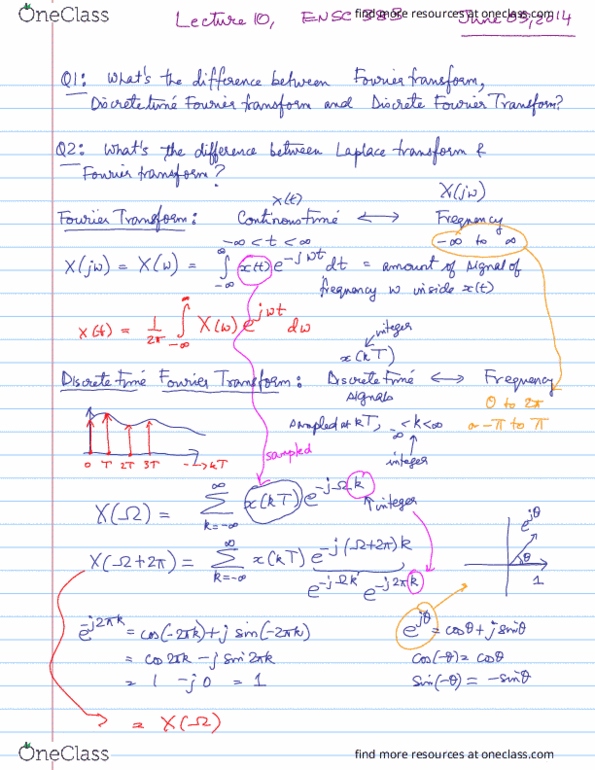 OneClass
find more resources at oneclass.com
Lecture 10, ENSC 2014
Q1: What's the difference between Fourier transform,
Discrete time Fourier transform and Discrete Fourier Transform?
Q2: What's the difference between Laplace transform &
Fourier transform?
x(t) X(jω)
Fourier Transform: Continous time ⟷ Frequency
-∞ < t < ∞ -∞ to ∞
X(jω) = X(ω) = ∫_{-∞}^{∞} x(t) e^{-jωt} dt = amount of signal of
frequency ω inside x(t)
x(t) = 1/2π ∫_{-∞}^{∞} X(ω) e^{jωt} dω
integer
x(kT)
Discrete time Fourier Transform: Discrete time ⟷ Frequency
signals 0 to 2π
sampled at kT, -∞ < k < ∞ or -π to π
integer
0 T 2T 3T → kT
sampled
X(Ω) = Σ_{k=-∞}^{∞} x(kT) e^{-jΩk}
integer
e^{jθ}
θ
1
X(Ω+2π) = Σ_{k=-∞}^{∞} x(kT) e^{-j(Ω+2π)k}
e^{-jΩk} e^{-j2πk}
e^{-j2πk} = cos(-2πk) + j sin(-2πk) e^{jθ} = cosθ + j sinθ
= cos 2πk - j sin 2πk cos(-θ) = cosθ
= 1 - j0 = 1 sin(-θ) = -sinθ
= X(Ω)
OneClass
find more resources at oneclass.com